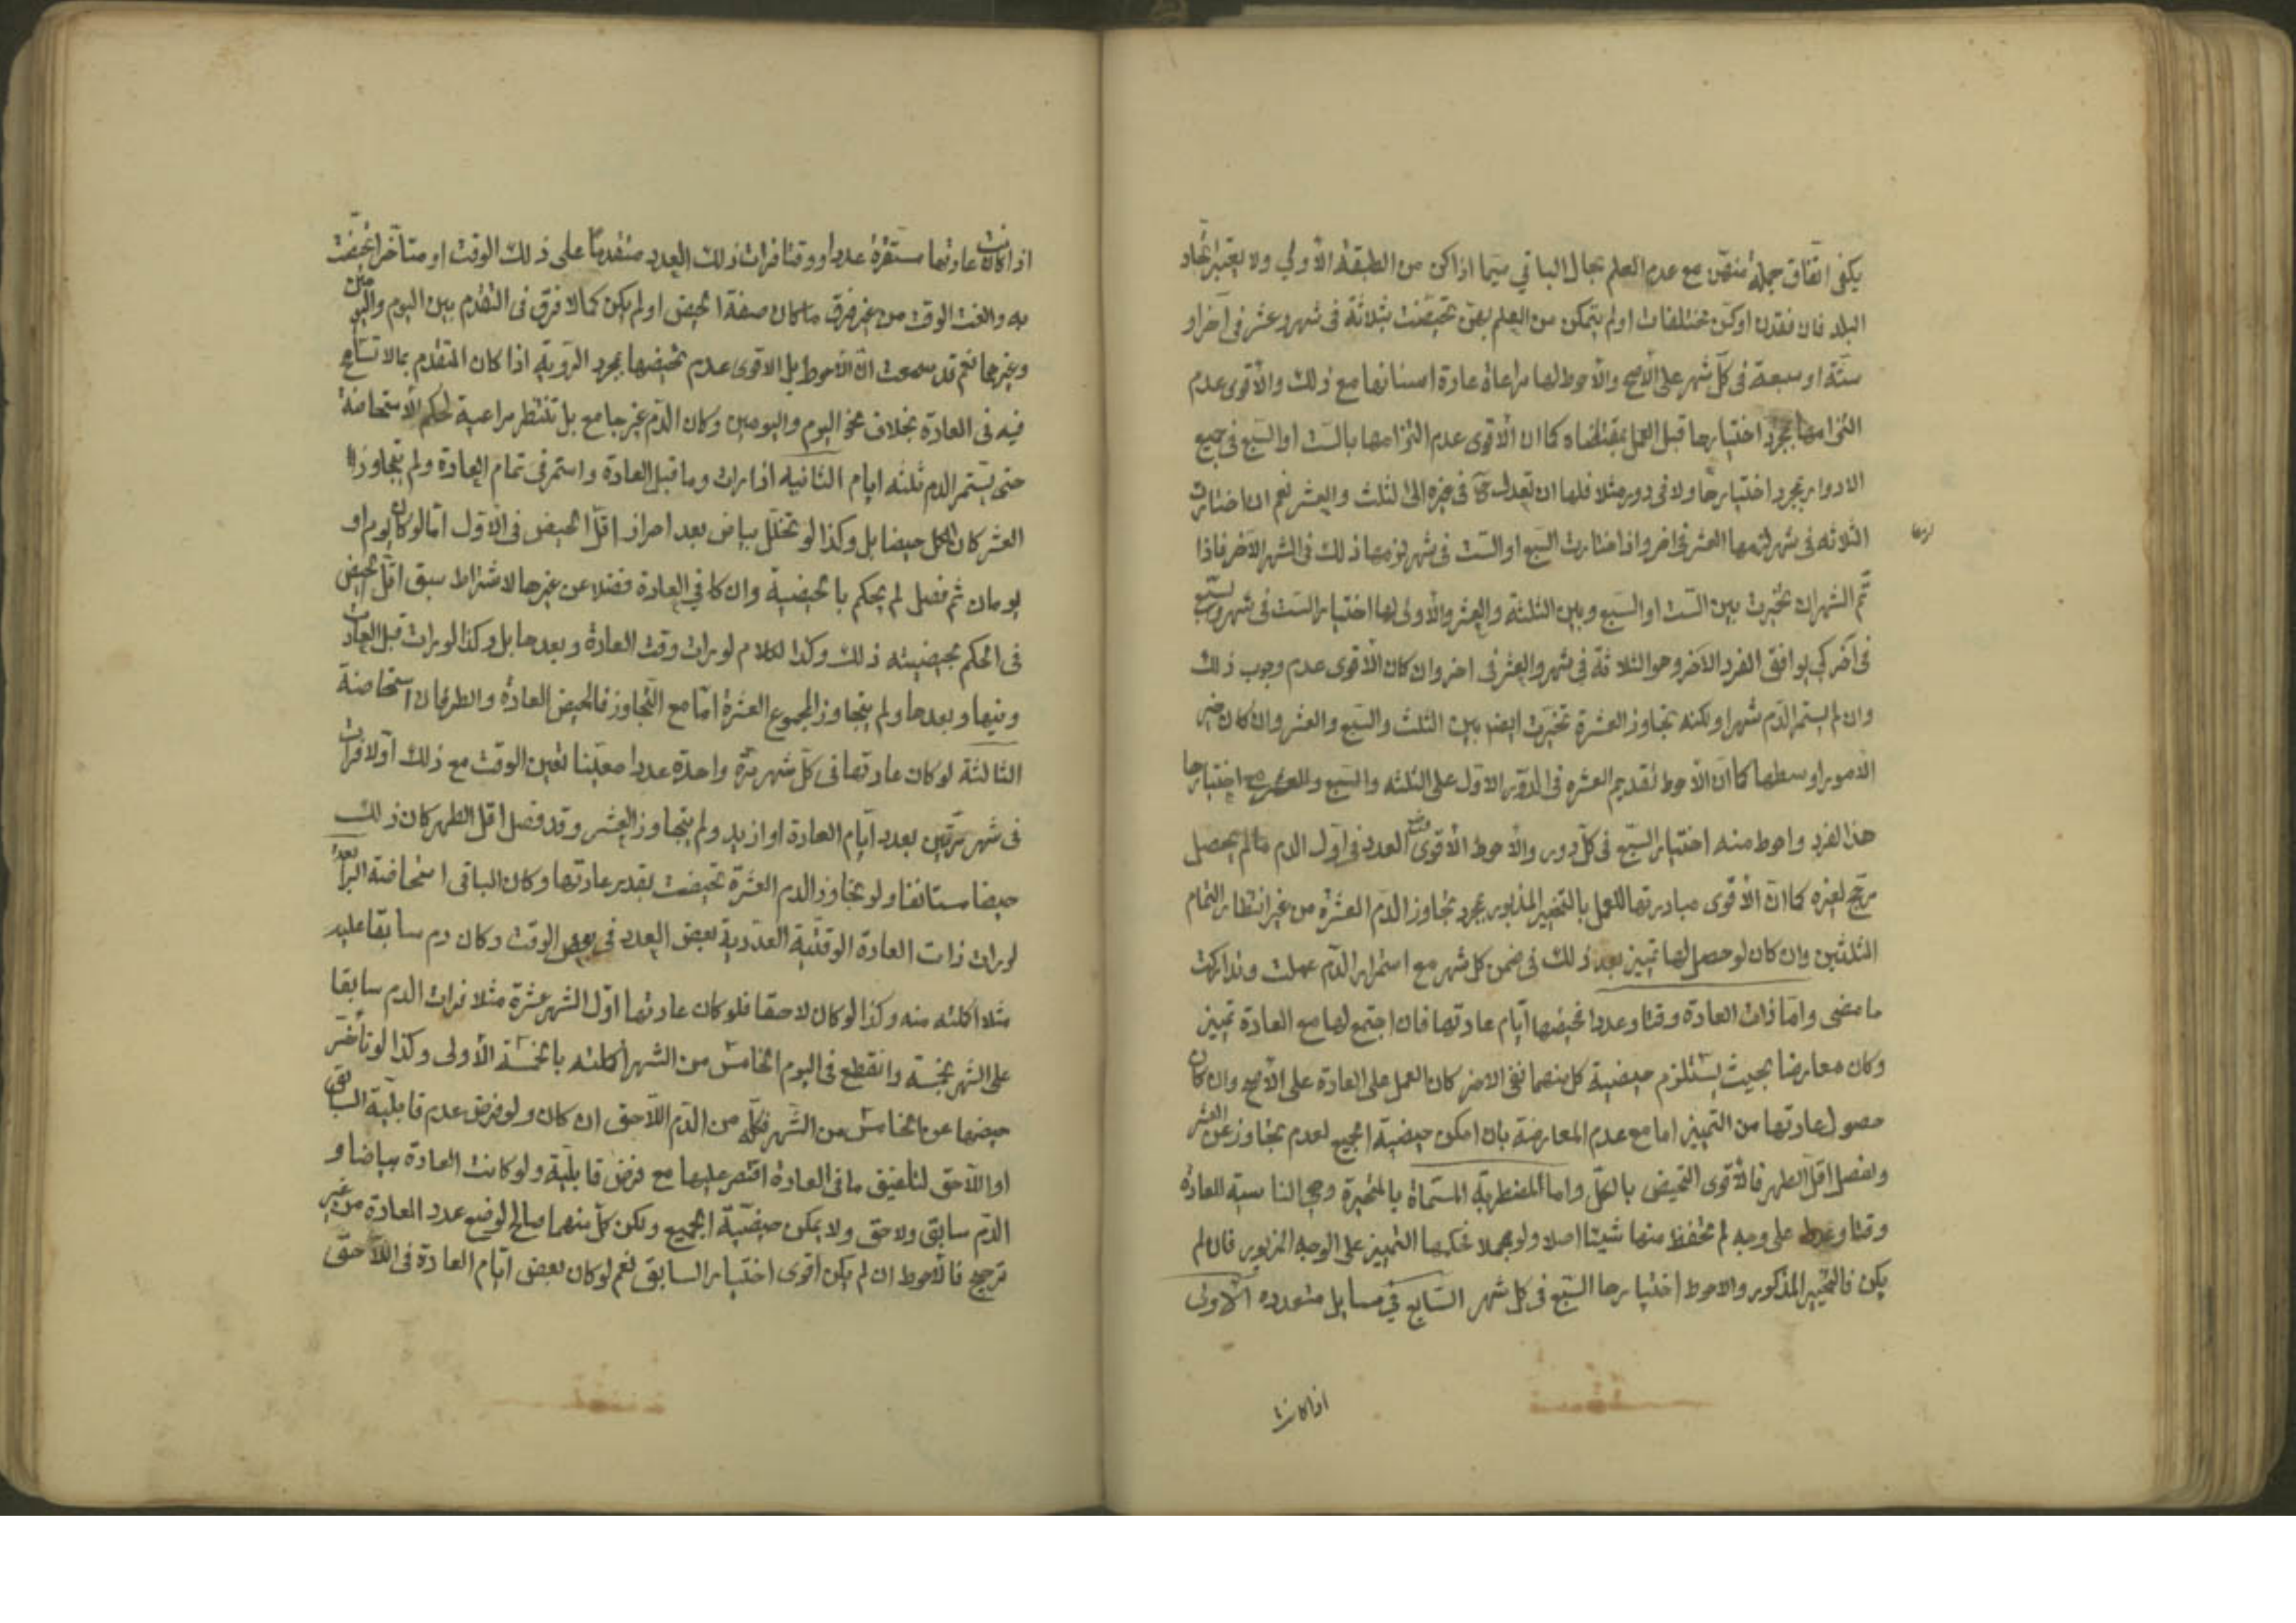 يكفى اتفاق جملة منهن مع عدم العلم بحال الباقي سيما اذا كن من الطبقة الأولي ولا يعتبر اتحاد
البلد فان فقدن او كن مختلفات او لم يتمكن من العلم بهن تحيضت بثلاثة فى شهر وعشر فى آخر او
ستة او سبعة فى كل شهر على الأصح والأحوط لها مراعاة عادة اسنانها مع ذلك والأقوى عدم
التزامها بمجرد اختيارها قبل العمل بمقتضاه كما ان الأقوى عدم التزامها بالست او السبع فى جميع
الادوار بمجرد اختيارها ولا فى دور مثلا فلها ان تعدل ح فى غيره الى الثلث والعشر نعم ان اختارت
الثلاثه فى شهر لزمها العشر فى اخر واذا اختارت السبع او الست فى شهر لزمها ذلك فى الشهر الآخر فاذا
لزمها
تم الشهران تخيرت بين الست او السبع وبين الثلثة والعشر والأولى لها اختيار الست فى شهر وسبع
فى آخر كي يوافق الفرد الآخر وهو الثلاثة فى شهر والعشر فى اخر وان كان الأقوى عدم وجوب ذلك
وان لم يستمر الدم شهرا ولكنه تجاوز العشرة تخيرت ايضا بين الثلث والسبع والعشر وان كان خير
الأمور اوسطها كما ان الأحوط تقديم العشره فى الدور الاول على الثلثه والسبع مع اختيارها
هذا الفرد واحوط منه اختيار السبع فى كل دور والأحوط الأقوى العدد فى اول الدم مالم يحصل
مرجح لغيره كما ان الأقوى مبادرتها للعمل بالتخيير المذبور بمجرد تجاوز الدم العشرة من غير انتظار التمام
الثلثين وان كان لو حصل لها تمييز بعد ذلك فى ضمن كل شهر مع استمرار الدم عملت وتداركت
ما مضى واما ذات العادة وقتا وعددا تحيضها ايام عادتها فان اجتمع لها مع العادة تمييز
وكان معارضا بحيث يستلزم حيضية كل منهما نفى الاخر كان العمل على العادة على الأصح وان كان
حصول عادتها من التمييز اما مع عدم المعارضة بان امكن حيضية الجميع لعدم تجاوز عن العشر
ولفصل اقل الطهر فالأقوى التحيض بالكل واما المضطربة المسماة بالمتحيرة وهي الناسية للعادة
وقتا وعددا على وجه لم تحفظ منها شيئا اصلا ولو مجملا فحكمها التمييز على الوجه المزبور فان لم
يكن فالتخيير المذكور والاحوط اختيارها السبع فى كل شهر السابع فى مسايل متعدده الأولى
اذا كانت
اذا كانت عادتها مستقرة عددا ووقتا فرات ذلك العدد متقدما على ذلك الوقت او متأخرا تحيضت
به والغت الوقت من غير فرق ما كان صفة الحيض او لم يكن كما لا فرق فى التقدم بين اليوم واليومين
وغيرهما نعم قد سمعت ان الأحوط بل الاقوى عدم تحيضها بمجرد الرؤية اذا كان المتقدم بمالا تسامح
فيه فى العادة بخلاف نحو اليوم واليومين وكان الدم غير جامع بل تنتظر مراعية لحكم الأستحاضة
حتى يستمر الدم ثلثه ايام الثانيه اذا رات وما قبل العادة واستمر فى تمام العادة ولم يتجاوز
العشر كان الكل حيضا بل وكذا لو تخلل بياض بعد احراز اقل الحيض فى الأول امالو كان يوم او
يومان ثم فصل لم يحكم بالحيضية وان كا فى العادة فضلا عن غيرها لاشتراط سبق اقل الحيض
فى الحكم بحيضيته ذلك وكذا الكلام لو رات وقت العادة وبعدها بل وكذا لو رات قبل العادت
وفيها وبعدها ولم يتجاوز المجموع العشرة اما مع التجاوز فالحيض العادة والطرفان استحاضة
الثالثة لو كان عادتها فى كل شهر مرة واحدة عددا معينا تعين الوقت مع ذلك اولا فرات
فى شهر مرتين بعدد ايام العادة او ازيد ولم يتجاوز العشر وقد فصل اقل الطهر كان ذلك
حيضا مستانفا ولو تجاوز الدم العشرة تحيضت بقدر عادتها وكان الباقى استحاضة الرابعة
لو رات ذات العادة الوقتية العددية بعض العدد فى بعض الوقت وكان دم سابقا عليه
مثلا اكملته منه وكذا لو كان لاحقا فلو كان عادتها اول الشهر عشرة مثلا فرات الدم سابقا
على الشهر بخمسة وانقطع فى اليوم الخامس من الشهر اكملته بالخمسة الأولى وكذا لو تأخر
حيضها عن الخامس من الشهر فكله من الدم اللاحق ان كان ولو فرض عدم قابلية السابق
او اللاحق لتلفيق مافى العادة اقتصر عليها مع فرض قابلية ولو كانت العادة بياضا و
الدم سابق ولاحق ولا يمكن حيضية الجميع ولكن كل منهما صالح لوضع عدد العادة من غير
ترجيح فالأحوط ان لم يكن أقوى اختيار السابق نعم لو كان بعض ايام العادة فى اللاحق